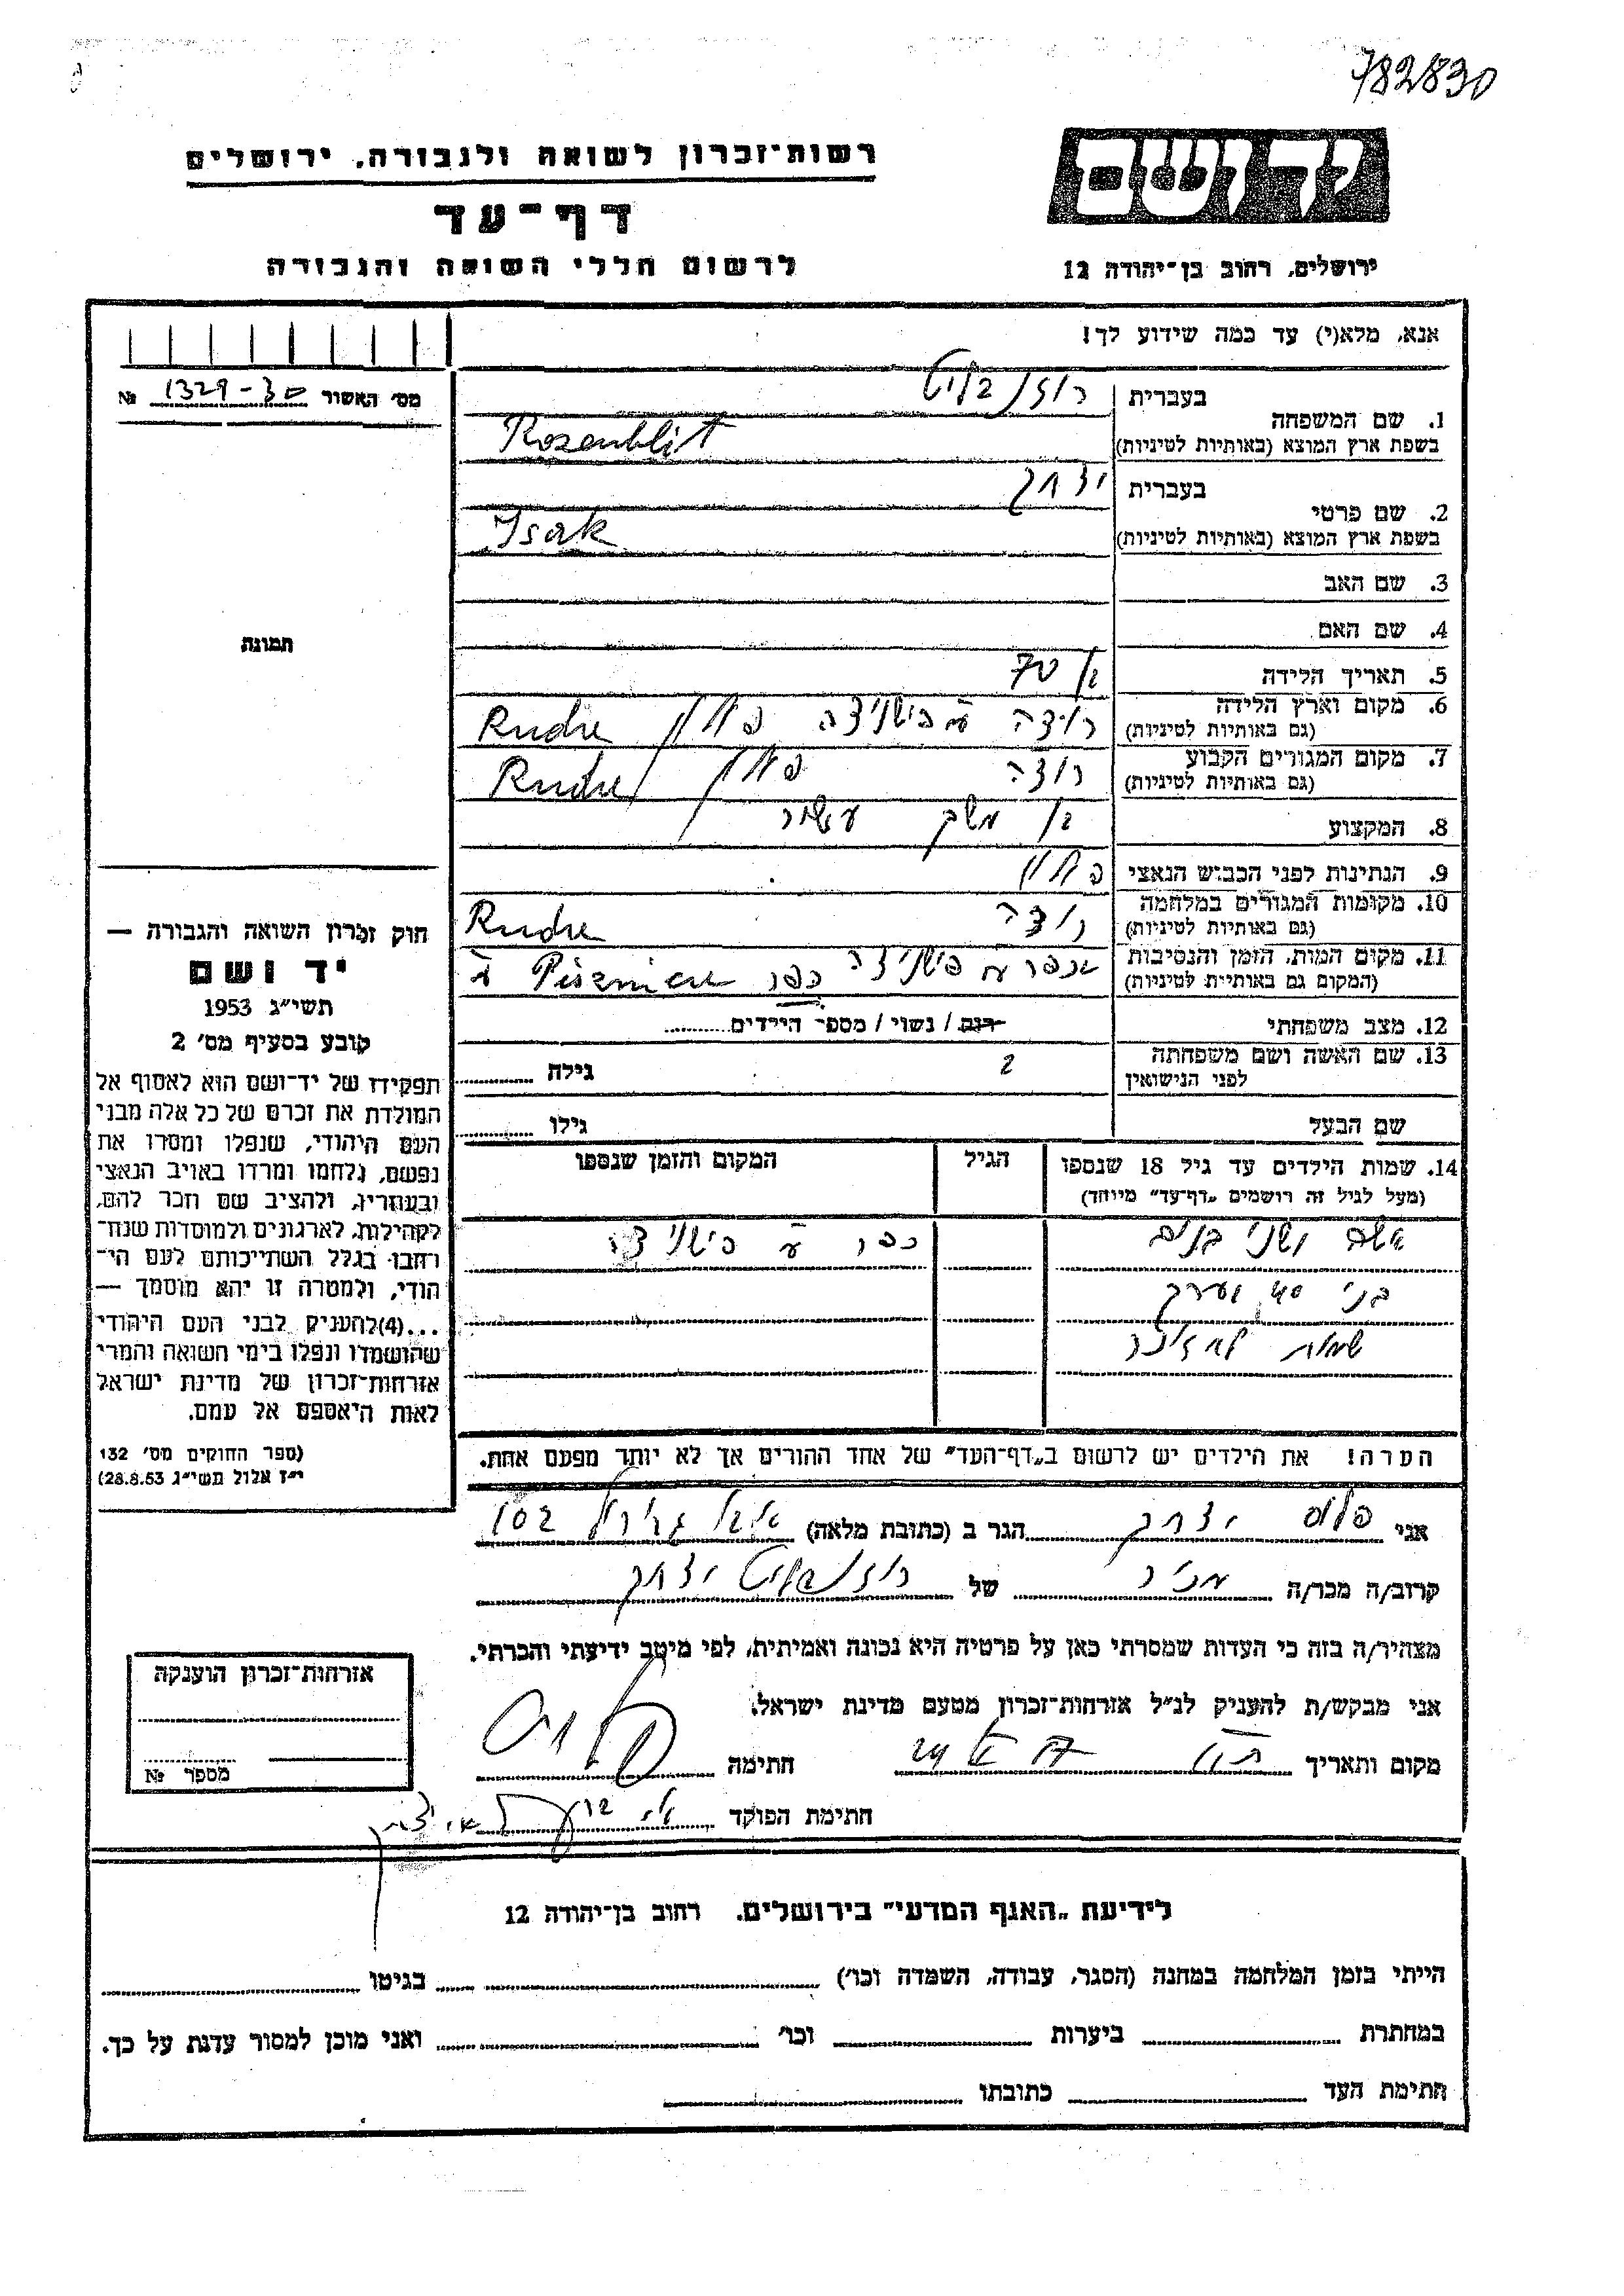 782830
רשות־זכרון לשואה ולגבורה, ירושלים
יד ושם
דף־עד
לרשום חללי השואה והגבורה
ירושלים, רחוב בן־יהודה 12
אנא, מלא(י) עד כמה שידוע לך!
מס' האשור 1329-30 №
1. שם המשפחה
בעברית רוזנבליט
בשפת ארץ המוצא (באותיות לטיניות) Rosenblit
2. שם פרטי
בעברית יצחק
בשפת ארץ המוצא (באותיות לטיניות) Isak
3. שם האב
4. שם האם
תמונה
5. תאריך הלידה בן 70
6. מקום וארץ הלידה
(גם באותיות לטיניות) רודה פולין
7. מקום המגורים הקבוע
(גם באותיות לטיניות) פולין
8. המקצוע בן משק
9. הנתינות לפני הכבוש הנאצי פולין
10. מקומות המגורים במלחמה
(גם באותיות לטיניות)
11. מקום המות, הזמן והנסיבות
(המקום גם באותיות לטיניות) כפר
12. מצב משפחתי רוק / נשוי / מספר הילדים
13. שם האשה ושם משפחתה
לפני הנישואין 2 גילה
שם הבעל גילו
14. שמות הילדים עד גיל 18 שנספו
(מעל לגיל זה רושמים „דף־עד" מיוחד)
הגיל
המקום והזמן שנספו
אשה ושני בנים כפר
בני 40 וערך
שמות לא זוכר
הערה! את הילדים יש לרשום ב„דף־העד" של אחד ההורים אך לא יותר מפעם אחת.
חוק זכרון השואה והגבורה —
יד ושם
תשי"ג 1953
קובע בסעיף מס' 2
תפקידו של יד־ושם הוא לאסוף אל
המולדת את זכרם של כל אלה מבני
העם היהודי, שנפלו ומסרו את
נפשם, נלחמו ומרדו באויב הנאצי
ובעוזריו, ולהציב שם וזכר להם,
לקהילות, לארגונים ולמוסדות שנח־
רחבו בגלל השתייכותם לעם הי־
הודי, ולמטרה זו יהא מוסמך —
...(4)להעניק לבני העם היהודי
שהושמדו ונפלו בימי השואה והמרי
אזרחות־זכרון של מדינת ישראל
לאות היאספם אל עמם.
(ספר החוקים מס' 132
י"ז אלול תשי"ג 28.8.53)
אני יצחק הגר ב (כתובת מלאה) 102
קרוב/ה מכר/ה מכיר של רוזנבליט יצחק
מצהיר/ה בזה כי העדות שמסרתי כאן על פרטיה היא נכונה ואמיתית, לפי מיטב ידיעתי והכרתי.
אני מבקש/ת להעניק לנ"ל אזרחות־זכרון מטעם מדינת ישראל.
מקום ותאריך חתימה
חתימת הפוקד
אזרחות־זכרון הוענקה
מספר №
לידיעת „האגף המדעי" בירושלים. רחוב בן־יהודה 12
הייתי בזמן המלחמה במחנה (הסגר, עבודה, השמדה וכו') בגיטו
במחתרת ביערות וכו' ואני מוכן למסור עדות על כך.
חתימת העד כתובתו